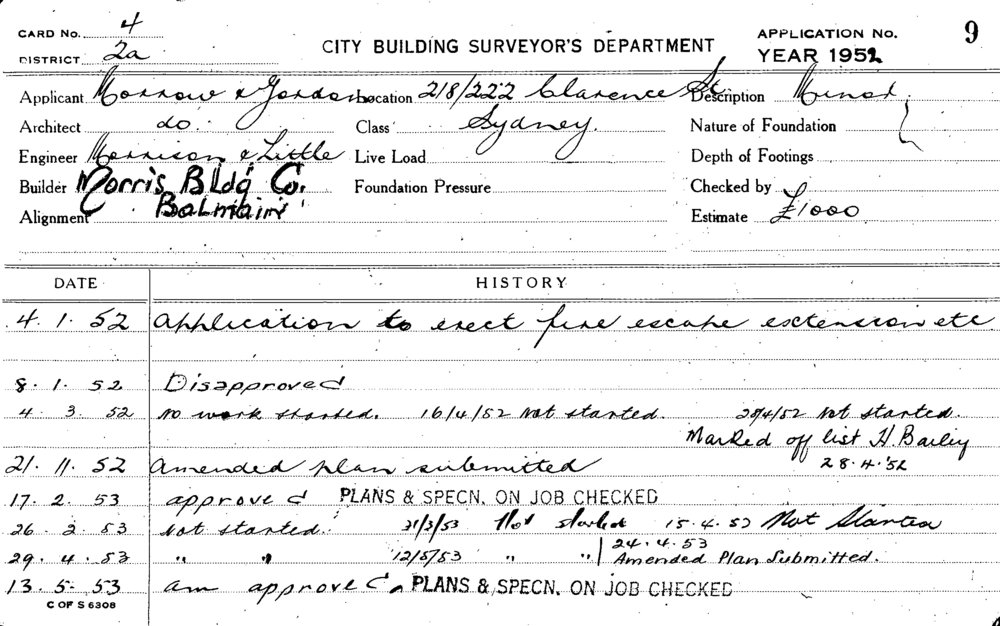 CARD No. 4
DISTRICT 2a
CITY BUILDING SURVEYOR'S DEPARTMENT
APPLICATION No. 9
YEAR 1952
Applicant Morrow & Gordon Location 218/222 Clarence St Description Minor
Architect do. Class Sydney. Nature of Foundation
Engineer Morrison & Little Live Load Depth of Footings
Builder Morris Bldg Co. Foundation Pressure Checked by
Alignment Balmain Estimate £1000
DATE HISTORY
4.1.52 Application to erect fire escape extension etc
8.1.52 Disapproved
4.3.52 No work started. 16/4/52 Not started. 28/4/52 Not started.
Marked off list H. Bailey
28.4.52
21.11.52 Amended plan submitted
17.2.53 approved PLANS & SPECN. ON JOB CHECKED
26.2.53 Not started. 31/3/53 Not started 15.4.53 Not Started
24.4.53
29.4.53 " " 12/5/53 " " Amended Plan Submitted.
13.5.53 am approved. PLANS & SPECN. ON JOB CHECKED
C OF S 6308